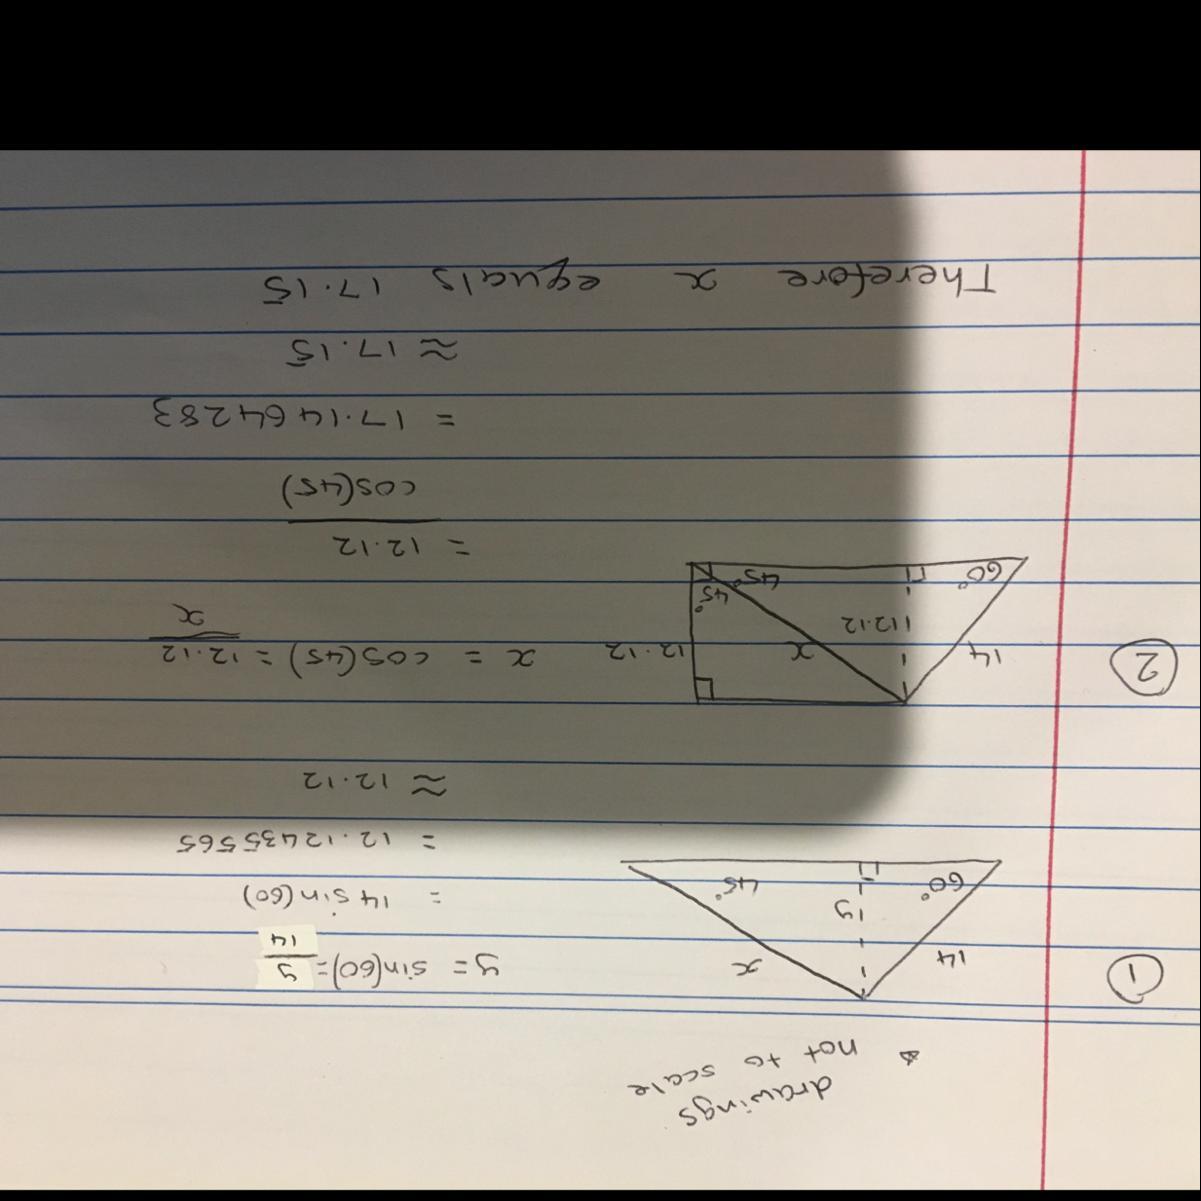 drawings
* not to scale
①
60°
14
y
45°
x
y = sin(60) = y/14
= 14 sin(60)
= 12.12435565
≈ 12.12
②
14
60°
12.12
x
45°
45°
12.12
x = cos(45) = 12.12/x
= 12.12
cos(45)
= 17.1464283
≈ 17.15
Therefore x equals 17.15